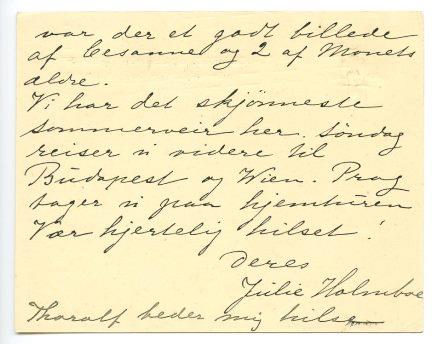 var der et godt billede
af Cesanne og 2 af Monets
ældre.
Vi har det skjønneste
sommerveir her. Søndag
reiser vi videre til
Budapest og Wien. Prag
tager vi paa hjemturen
Vær hjertelig hilset!
Deres
Julie Holmboe
Thorolf beder mig hilse